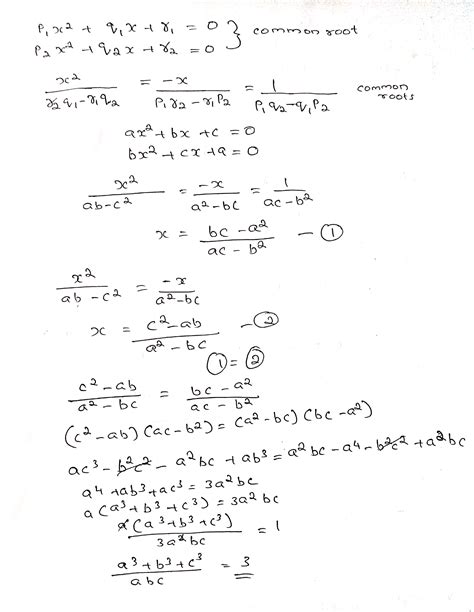 p₁x² + q₁x + r₁ = 0 } common root
p₂x² + q₂x + r₂ = 0
x²/(r₂q₁ - r₁q₂) = -x/(p₁r₂ - r₁p₂) = 1/(p₁q₂ - q₁p₂) common roots
ax² + bx + c = 0
bx² + cx + a = 0
x²/(ab - c²) = -x/(a² - bc) = 1/(ac - b²)
x = (bc - a²)/(ac - b²) — ①
x²/(ab - c²) = -x/(a² - bc)
x = (c² - ab)/(a² - bc) — ②
① = ②
(c² - ab)/(a² - bc) = (bc - a²)/(ac - b²)
(c² - ab)(ac - b²) = (a² - bc)(bc - a²)
ac³ - b²c² - a²bc + ab³ = a²bc - a⁴ - b²c² + a²bc
a⁴ + ab³ + ac³ = 3a²bc
a(a³ + b³ + c³) = 3a²bc
a(a³ + b³ + c³)/3a²bc = 1
(a³ + b³ + c³)/abc = 3